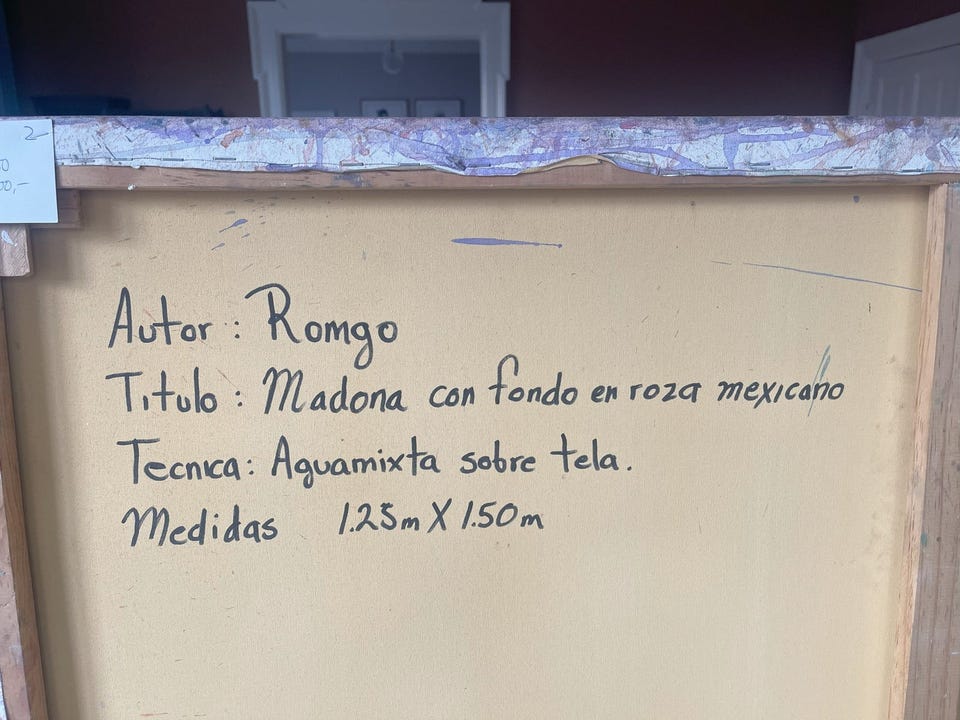 2-
50
00,-
Autor : Romgo
Titulo : Madona con fondo en roza mexicano
Tecnica: Aguamixta sobre tela.
Medidas 1.25m X 1.50m